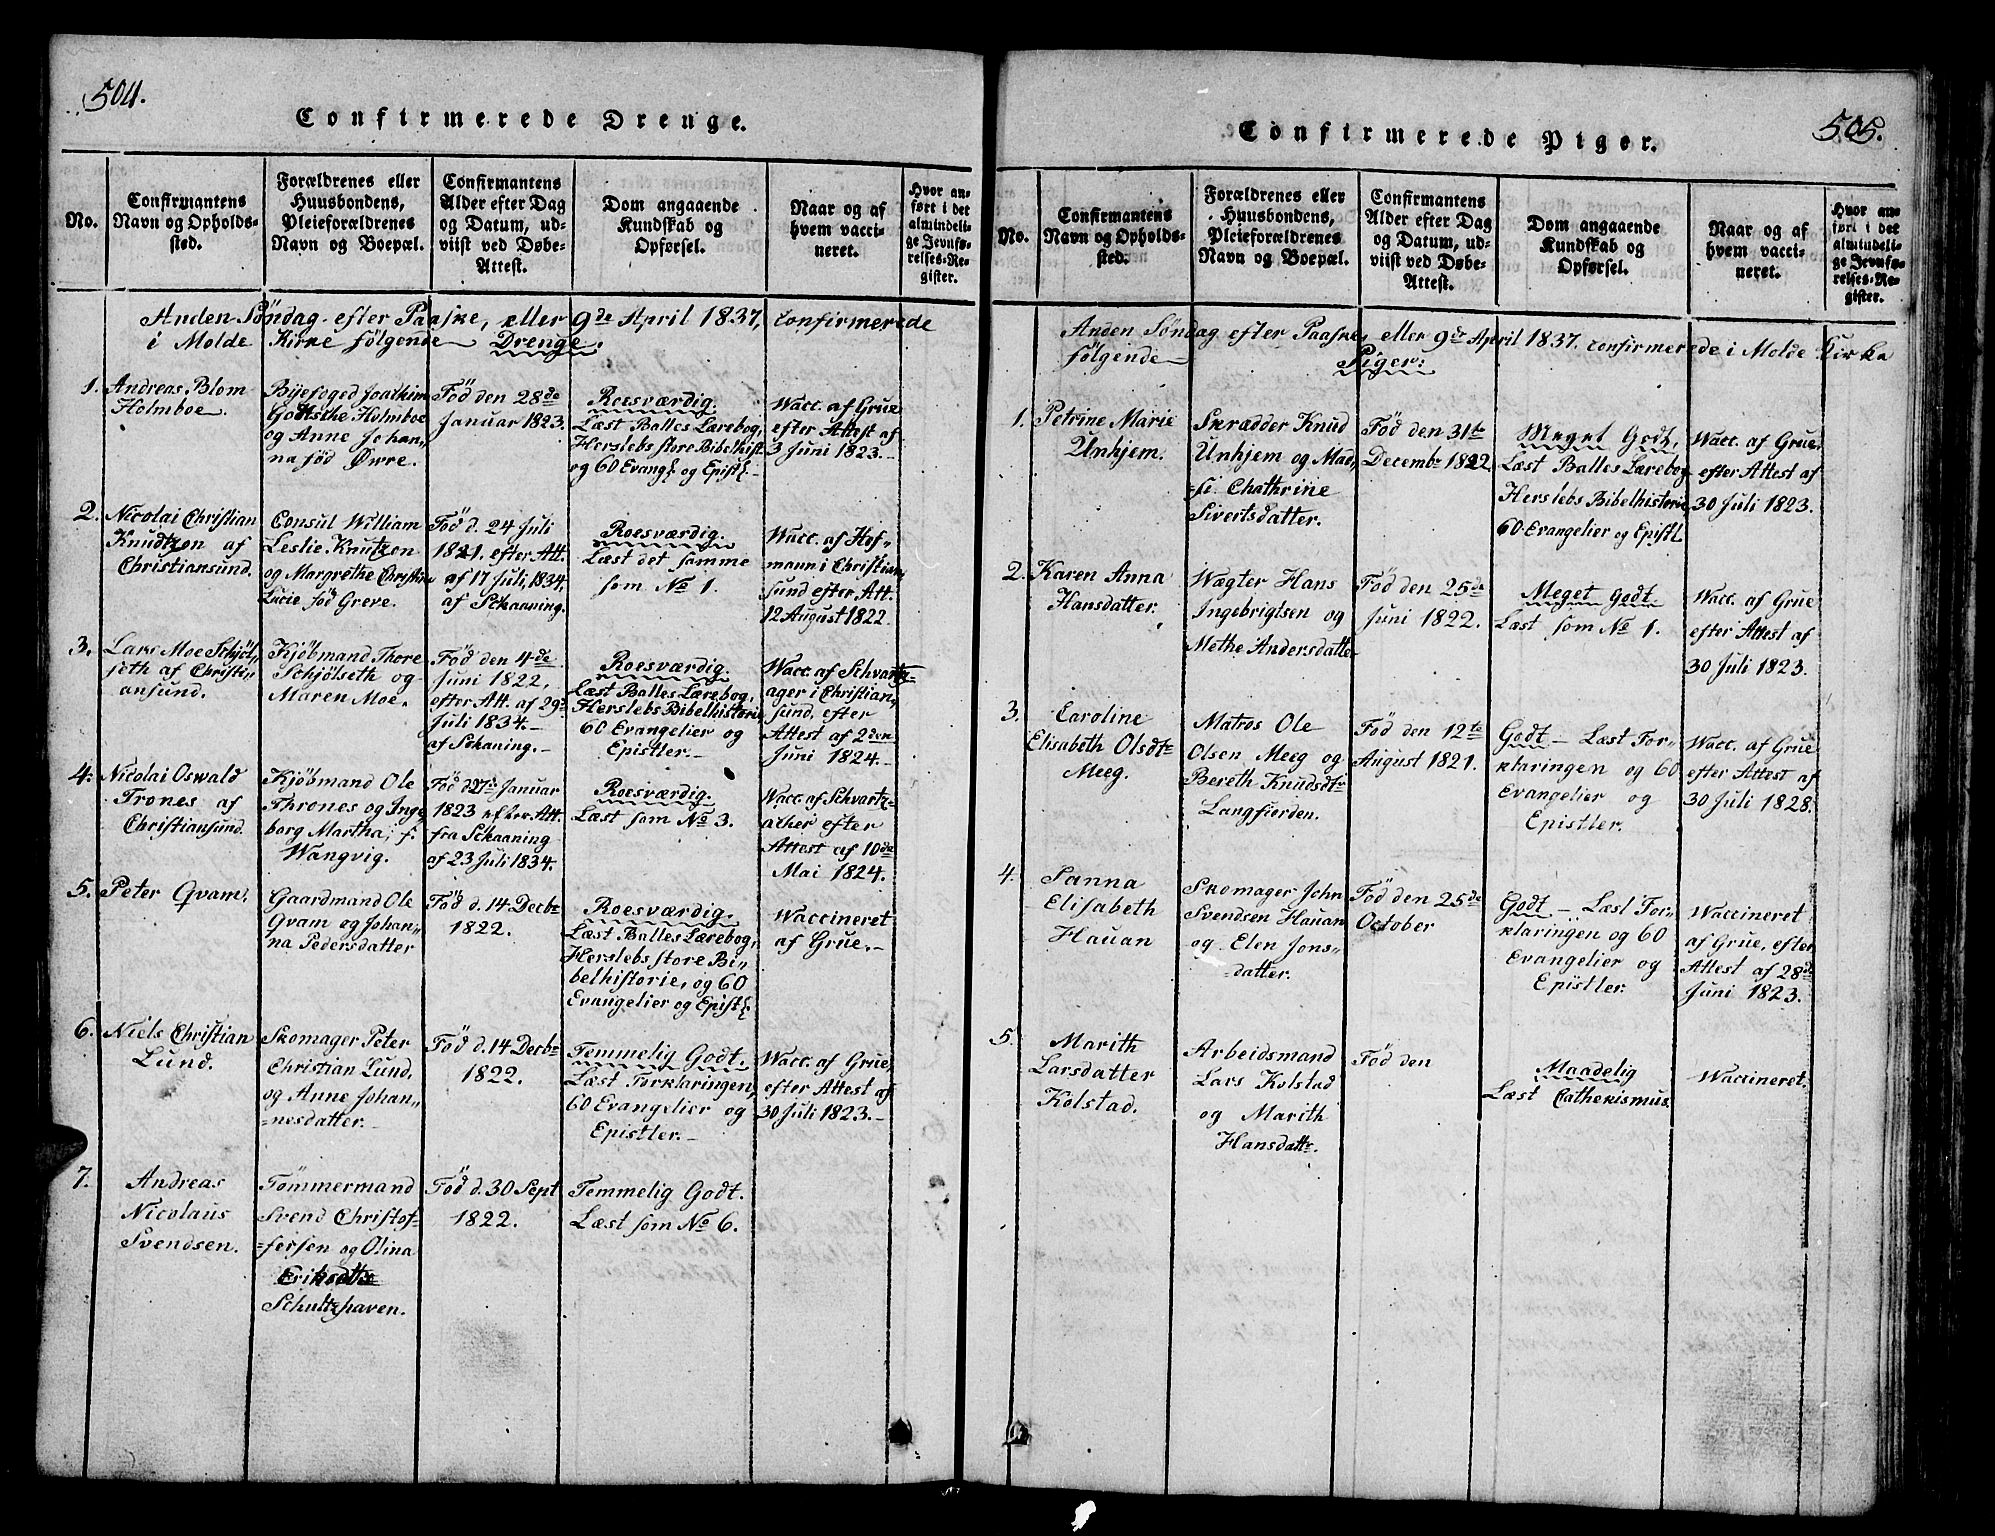 504.
Confirmerede Drenge.
No.
Confirmantens
Navn og Opholds-
sted.
Forældrenes eller
Huusbondens,
Pleieforældrenes
Navn og Boepæl.
Confirmantens
Alder efter Dag
og Datum, ud-
viist ved Døbe-
Attest.
Dom angaaende
Kundskab og
Opførsel.
Naar og af
hvem vacci-
neret.
Hvor an-
ført i det
almindeli-
ge Jevnfø-
relses-Re-
gister.
Anden Söndag efter Paaske, eller 9de April 1837, confirmerede
i Molde Kirke følgende Drenge:
1. Andreas Blom
Holmboe.
Byefoged Joathim
Godtsche Holmboe
og Anne Johan„
na fød Øwre.
Fød den 28de
Januar 1823.
Roesværdig.
Læst Balles Lærebog,
Herslebs store Bibelhist
og 60 Evang. og Epist.
Wacc. af Grue
efter Attest af
3 Juni 1823.
2. Nicolai Christian
Knudtzon af
Christiansund.
Consul William
Leslie Knutzon
og Margrethe Christine
Lucie fød Greve.
Fød d. 24 Juli
1821. efter Att.
af 17 Juli, 1834,
af Schaaning.
Roesværdig.
Læst det samme
som No 1.
Wacc. af Hof
mann i Christian„
sund efter Att.
12 August 1822
3. Lars Moe Schjöl„
seth af Christi„
ansund.
Kjöbmand Thore
Schjölseth og
Maren Moe.
Fød den 4de
Juni 1822,
efter Att. af 29d
Juli 1834.
af Schaning.
Roesværdig.
Læst Balles Lærebog,
Herslebs Bibelhistorie
60 Evangelier og
Epistler.
Wacc. af Schvartz„
ager i Christian„
sund, efter
Attest af 2den
Juni 1824.
4. Nicolai Oswald
Trones af
Christiansund.
Kjöbmand Ole
Thrones og Inge
borg Martha, f.
Wangvig.
Fød d 27de Januar
1823 efter Att
fra Schaaning
af 23 Juli 1834.
Roesværdig.
Læst som No 3.
Wacc. af Schvartz„
acher efter
Attest af 10de
Mai 1824.
5. Peter Qvam.
Gaardmand Ole
Qvam og Johan„
na Pedersdatter
Fød d. 14 Decbr
1822.
Roesværdig.
Læst Balles Lærebog,
Herslebs store Bi„
belhistorie, og 60
Evangelier og Epist.
Waccineret
af Grue.
6. Niels Christian
Lund.
Skomager Peter
Christian Lund,
og Anne Johan„
=nesdatter.
Fød d. 14 Decbr
1822.
Temmelig Godt.
Læst Forklaringen,
60 Evangelier og
Epistler.
Wacc. af Grue,
efter Attest af
30 Juli 1823.
7. Andreas
Nicolaus
Svendsen.
Tømmermand
Svend Christof=
=fersen og Olina
Eriksdttr
Schultzhaven.
Fød d. 30 Sept
1822.
Temmelig Godt.
Læst som No 6.
505.
Confirmerede Piger.
No.
Confirmantens
Navn og Opholds-
sted.
Forældrenes eller
Huusbondens,
Pleieforældrenes
Navn og Boepæl.
Confirmantens
Alder efter Dag
og Datum, ud-
viist ved Døbe-
Attest.
Dom angaaende
Kundskab og
Opførsel.
Naar og af
hvem vacci-
neret.
Hvor an-
ført i det
almindeli-
ge Jevnfø-
relses-Re-
gister.
Anden Søndag efter Paaske, eller 9de April 1837. confirmerede i Molde Kirke
følgende Piger:
1. Petrine Marie
Unhjem.
Skrædder Knud
Unhjem og Mad„
=si Chathrine
Sivertsdatter.
Fød den 31te
Decembr 1822
Meget Godt,
Læst Balles Lærebog
Herslebs Bibelhistorie
60 Evangelier og Epistl
Wacc. af Grue
efter Attest af
30 Juli 1823.
2. Karen Anna
Hansdatter.
Wægter Hans
Ingebrigtsen og
Methe Andersdatter
Fød den 25de
Juni 1822.
Meget godt.
Læst som No 1.
Wacc. af Grue
efter Attest af
30 Juli 1823.
3. Caroline
Elisabeth Olsdtr
Meeg.
Matros Ole
Olsen Meeg og
Bereth Knudsdtr
Langfiorden.
Fød den 12te
August 1821.
Godt — Læst For=
klaringen og 60
Evangelier og
Epistler.
Wacc. af Grue
efter Attest af
30 Juli 1828.
4. Sanna
Elisabeth
Hauan
Skomager John
Svendsen Hauan
og Elen Jons=
=datter.
Fød den 25de
October
Godt — Læst For=
klaringen og 60
Evangelier og
Epistler.
Waccineret
af Grue, efter
Attest af 28de
Juni 1823.
5. Marith
Larsdatter
Kolstad.
Arbeidsmand
Lars Kolstad
og Marith
Hansdattr.
Fød den
Maadelig
Læst Cathekismus.
Waccineret.